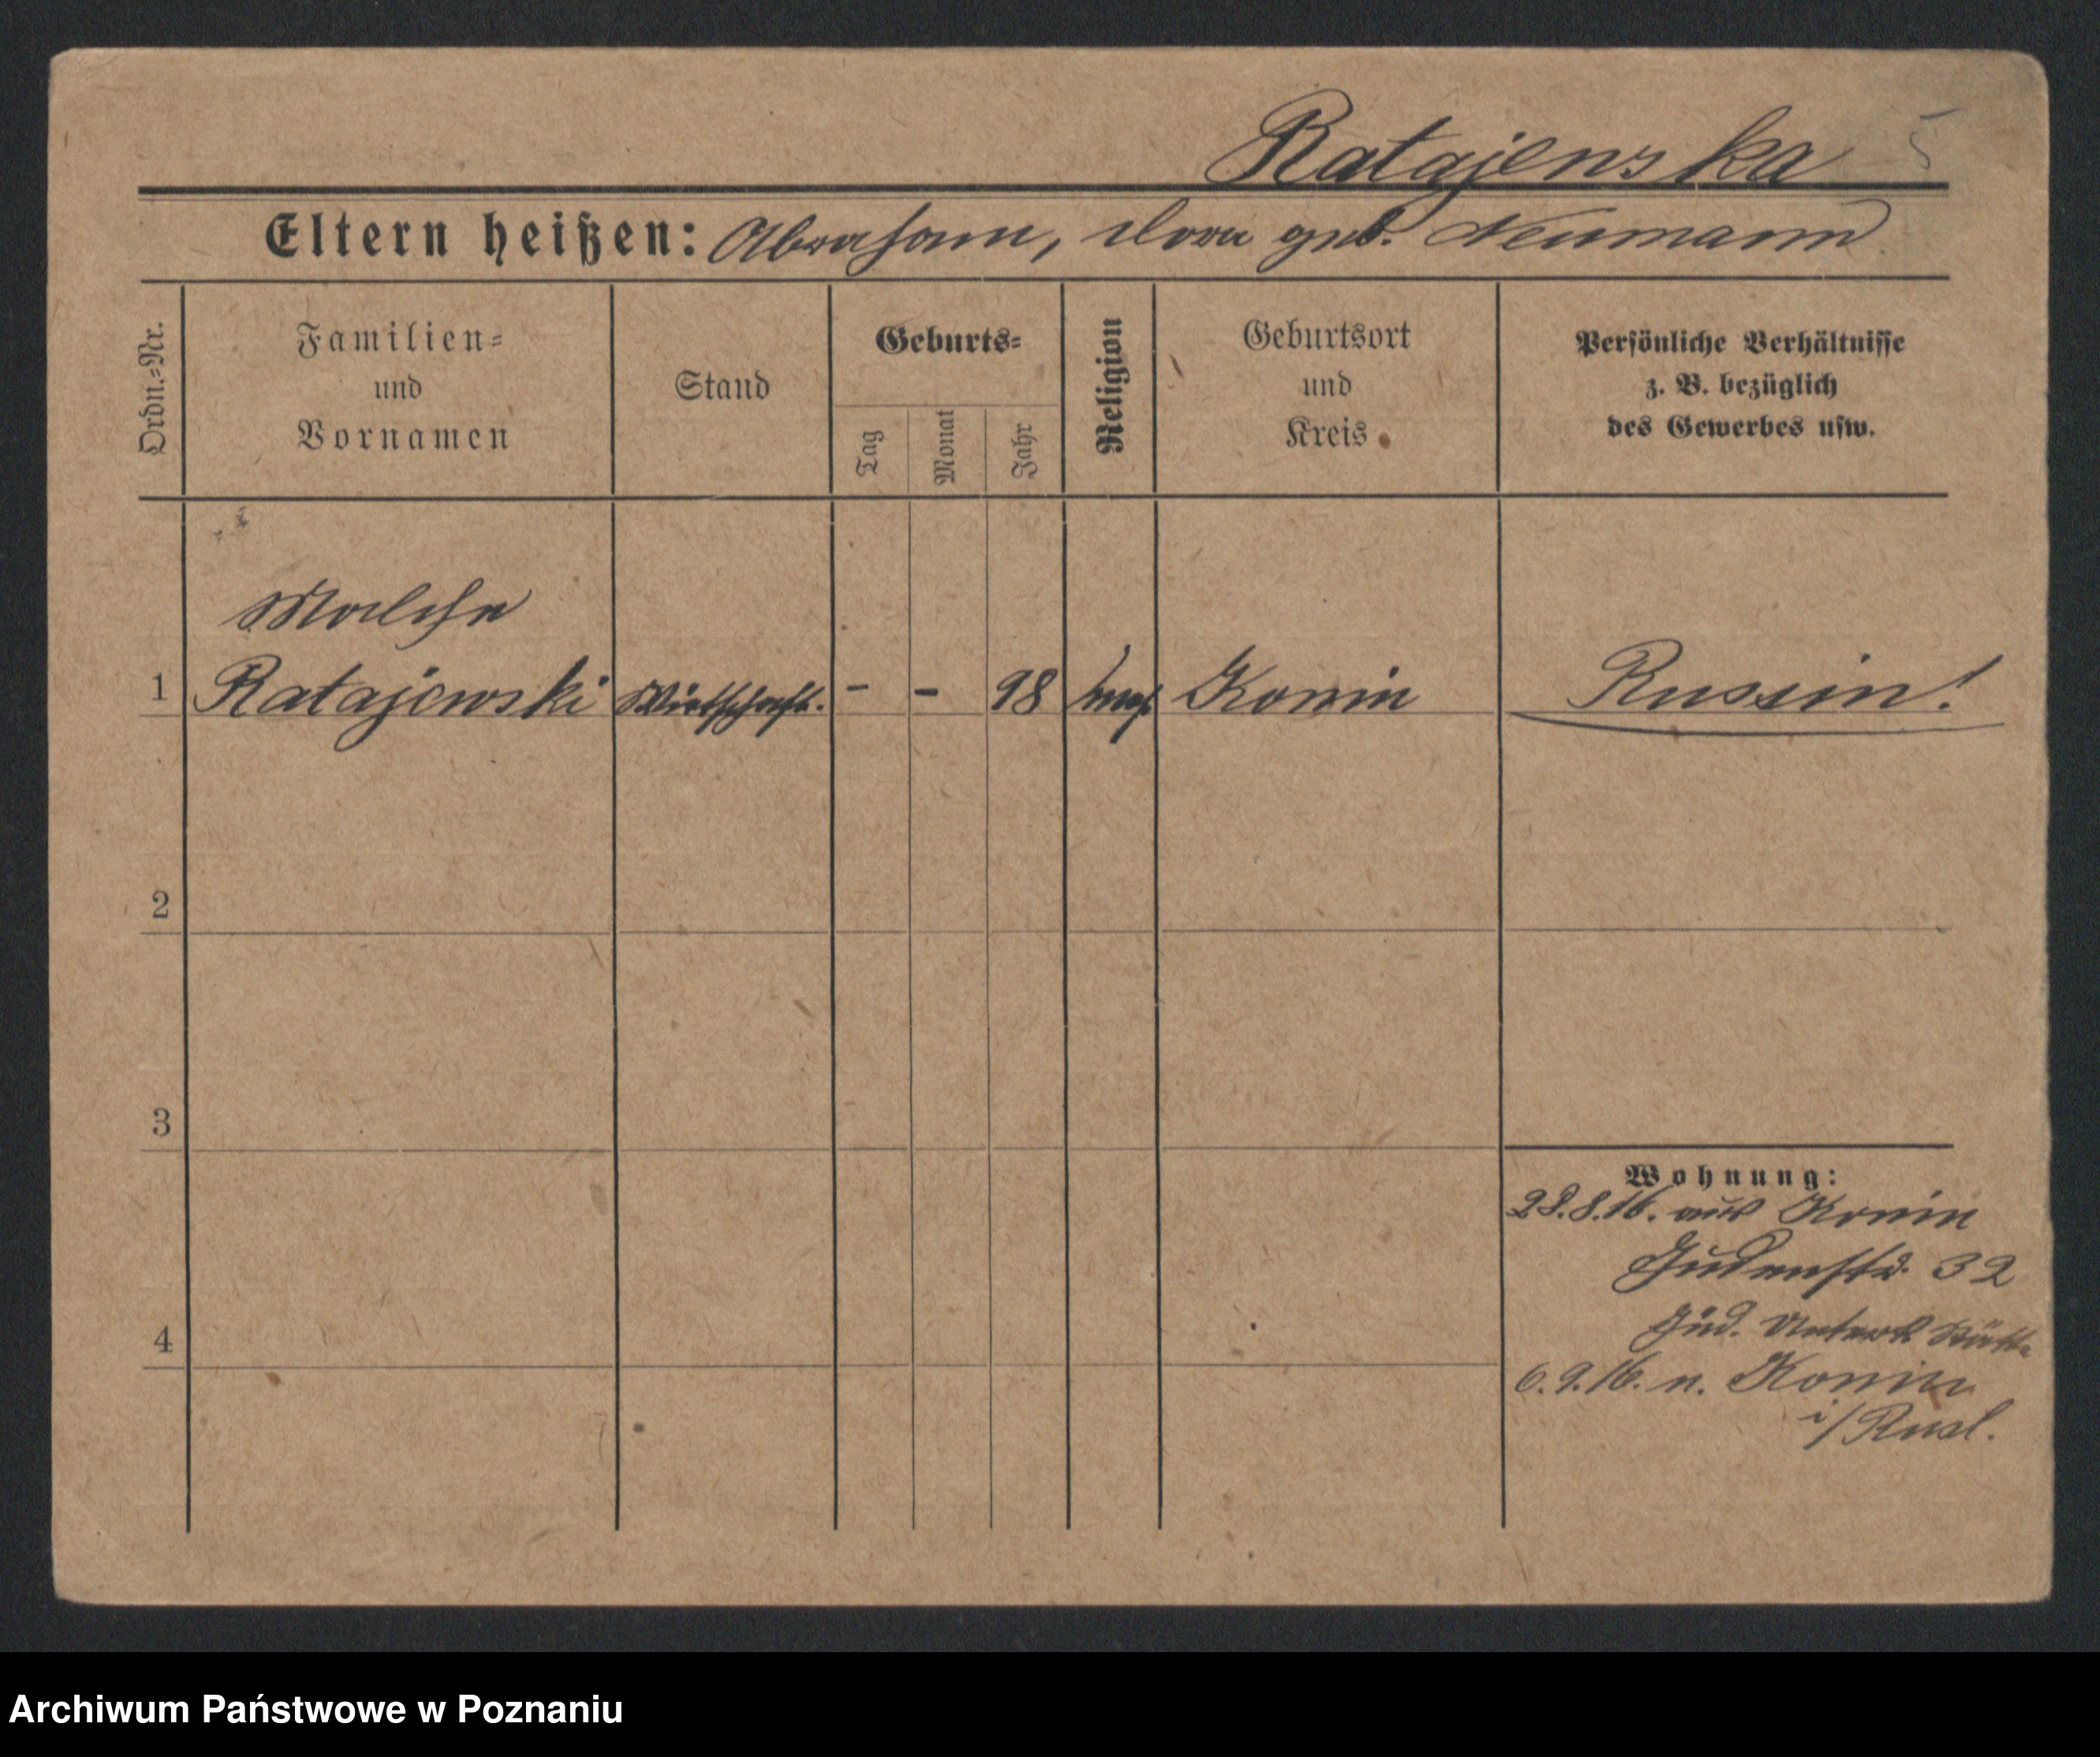 Ratajewska
Eltern heißen: Abraham, Dora geb. Neumann
Ordn.-Nr.
Familien-
und
Vornamen
Stand
Geburts-
Tag
Monat
Jahr
Religion
Geburtsort
und
Kreis
Persönliche Verhältnisse
z. B. bezüglich
des Gewerbes usw.
Malche
1 Ratajewski Wirtschaft. - - 98 Konin Russin!
2
3
Wohnung:
28.8.16. aus Konin
Judenstr. 32
4
Jüd.
6.9.16. n. Konin
i/Rusl.
Archiwum Państwowe w Poznaniu